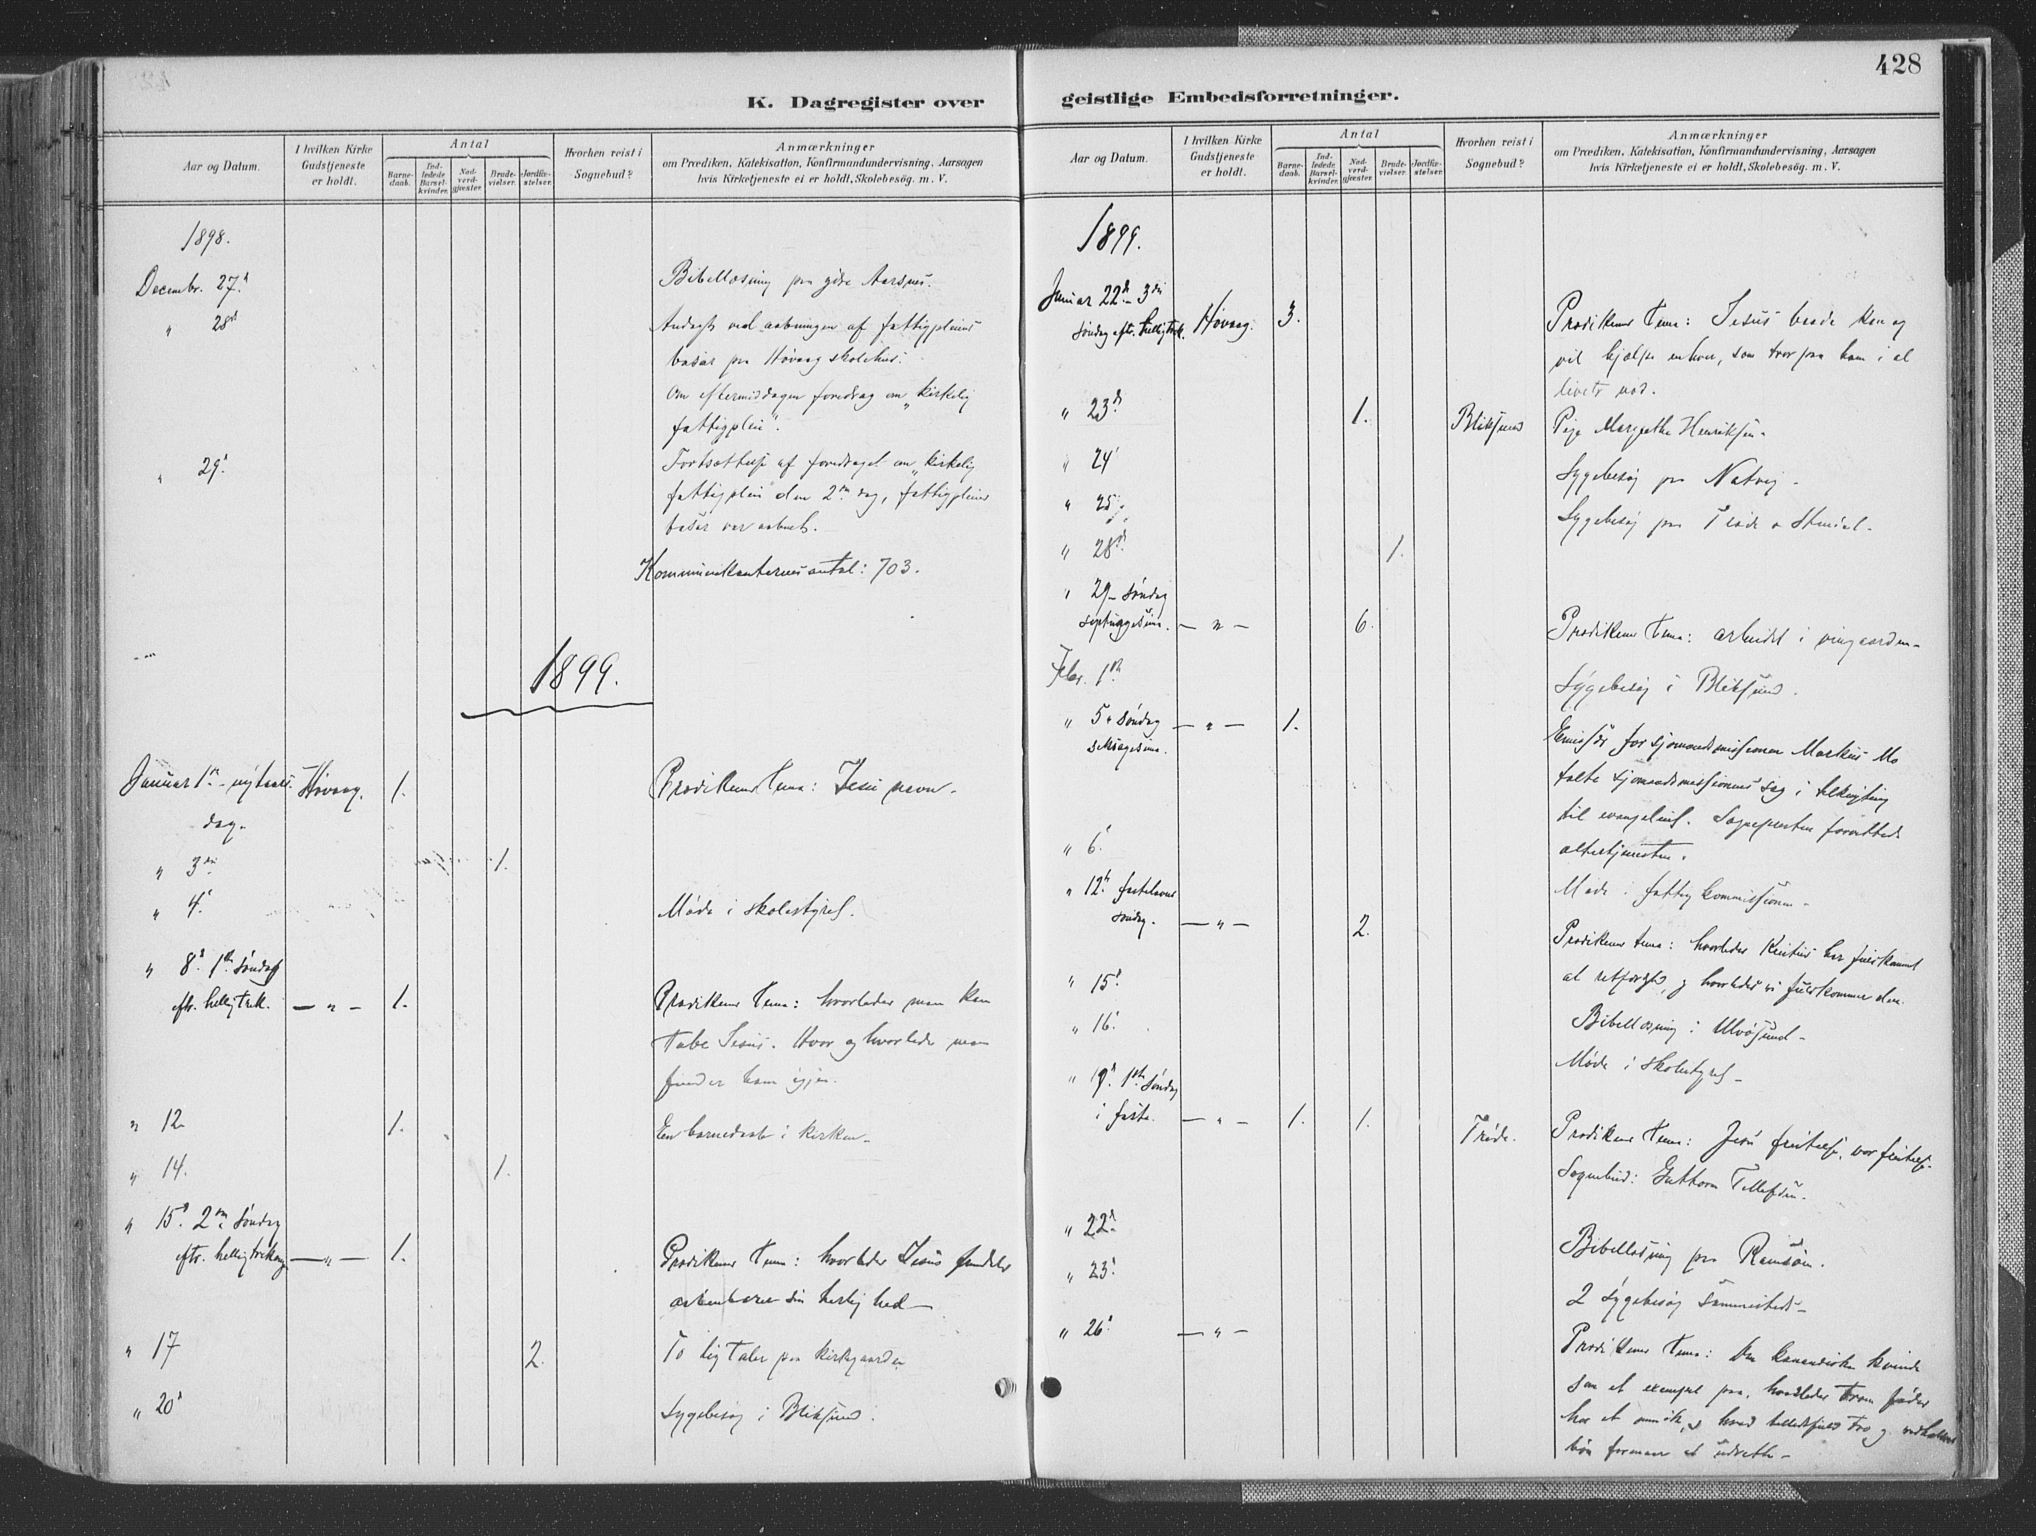 428
K. Dagregister over
geistlige Embedsforretninger.
Aar og Datum.
I hvilken Kirke Gudstjeneste er holdt.
Antal
Barnedaab.
Indledede Barselkvinder.
Nadverdgjæster.
Brudevielser.
Jordfæstelser.
Hvorhen reist i Sognebud?
Anmærkninger
om Prædiken, Katekisation, Konfirmandundervisning, Aarsagen
hvis Kirketjeneste ei er holdt, Skolebesøg. m. V.
1898.
Decembr. 27d Bibellæsning paa ydre Aarsnes.
" 28d Andagt ved aabningen af fattigpleiens
basar paa Høvaag skolehus.
Om eftermiddagen foredrag om „kirkelig
fattigpleie".
" 29d Fortsættelse af foredraget om „kirkelig
fattigpleie" den 2den dag, fattigpleiens
basar var aabnet.
Kommunikanternes antal: 703.
1899.
Januar 1ste nytaars- Høvaag. 1. Prædikens Tema: Jesu navn.
dag.
" 3die 1.
" 4d Møde i skolestyret.
" 8d 1ste Søndag
eftr. helligtrek. — " — 1. Prædikens Tema: hvorledes man kan
tabe Jesus. Hvor og hvorledes man
finder ham igjen.
" 12 1. En barnedaab i kirken.
" 14. 1.
" 15d 2den Søndag
eftr. helligtrekong — " — 1. Prædikens Tema: hvorledes Jesus
aabenbarer sin herlighed
" 17 2. To ligtaler paa kirkegaarden
" 20d Sygebesøg i Bliksund.
Aar og Datum.
I hvilken Kirke Gudstjeneste er holdt.
Antal
Barnedaab.
Indledede Barselkvinder.
Nadverdgjæster.
Brudevielser.
Jordfæstelser.
Hvorhen reist i Sognebud?
Anmærkninger
om Prædiken, Katekisation, Konfirmandundervisning, Aarsagen
hvis Kirketjeneste ei er holdt, Skolebesøg. m. V.
1899.
Januar 22d 3die
Søndag eftr. helligtrek. Høvaag. 3. Prædikens Tema: Jesus baade kan og
vil hjælpe enhver, som tror paa ham i al
livets nød.
" 23d 1. Bliksund Pige Margrethe Henriksen.
" 24 Sygebesøg paa Natvig.
" 25 Sygebesøg paa Trøde
" 28d 1.
" 29 Søndag
septuagesima. — " — 6. Prædikens Tema: arbeidet i vingaarden
Febr. 1ste Sygebesøg i Bliksund.
" 5. Søndag — " — 1. Emissær for sjømandsmissionen Markus Mo
seksagesima. talte sjømandsmissionens sag i tilknytning
til evangeliet. Sognepresten forrettede
altertjenesten.
" 6d Møde i fattigkommissionen
" 12d fastelavns
søndag. — " — 2. Prædikens tema: hvorledes Kristus har fuldkommet
al retfærdighed, og hvorledes vi fuldkommer den.
" 15d Bibellæsning i Ulvøsund
" 16d Møde i skolestyret
" 19d 1ste Søndag
i faste. — " — 1. 1. Trøde. Prædikens Tema: Jesu fristelse, vor fristelse.
Sognebud: Guthorm Tellefsen.
" 22d Bibellæsning paa Ramsøen.
" 23d 2 Sygebesøg sammesteds
" 26d — " — Prædikens Tema: Den kananæiske kvinde
som et exempel paa, hvorledes troen føder
bøn formaar at udrette